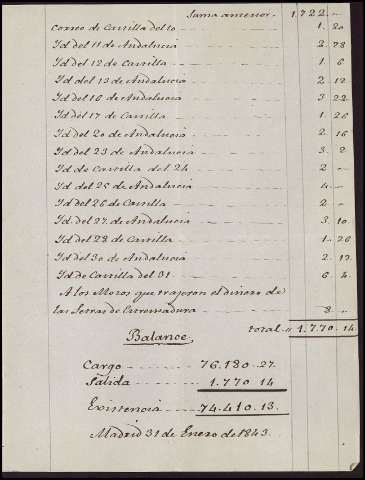 Suma anterior. 1.722 --
Correo de Castilla del 10 1. 20
Id del 11 de Andalucia 2. 28
Id del 12 de Castilla 1. 6
Id del 13 de Andalucia 2. 12
Id del 16 de Andalucia 3. 22
Id del 17 de Castilla 1. 26
Id del 20 de Andalucia 2. 16
Id del 23 de Andalucia 3. 2
Id de Castilla del 24 2. --
Id del 25 de Andalucia 4. --
Id del 26 de Castilla 2. --
Id del 27 de Andalucia 3. 10
Id del 28 de Castilla 1. 26
Id del 30 de Andalucia 2. 12
Id de Castilla del 31 6. 4
A los Mozos que trajeron el dinero de
las Serras de Estremadura 8 --
total " 1.770. 14
Balance,
Cargo 76.180. 27.
Salida 1.770 14
Existencia 74.410. 13.
Madrid 31 de Enero de 1843.